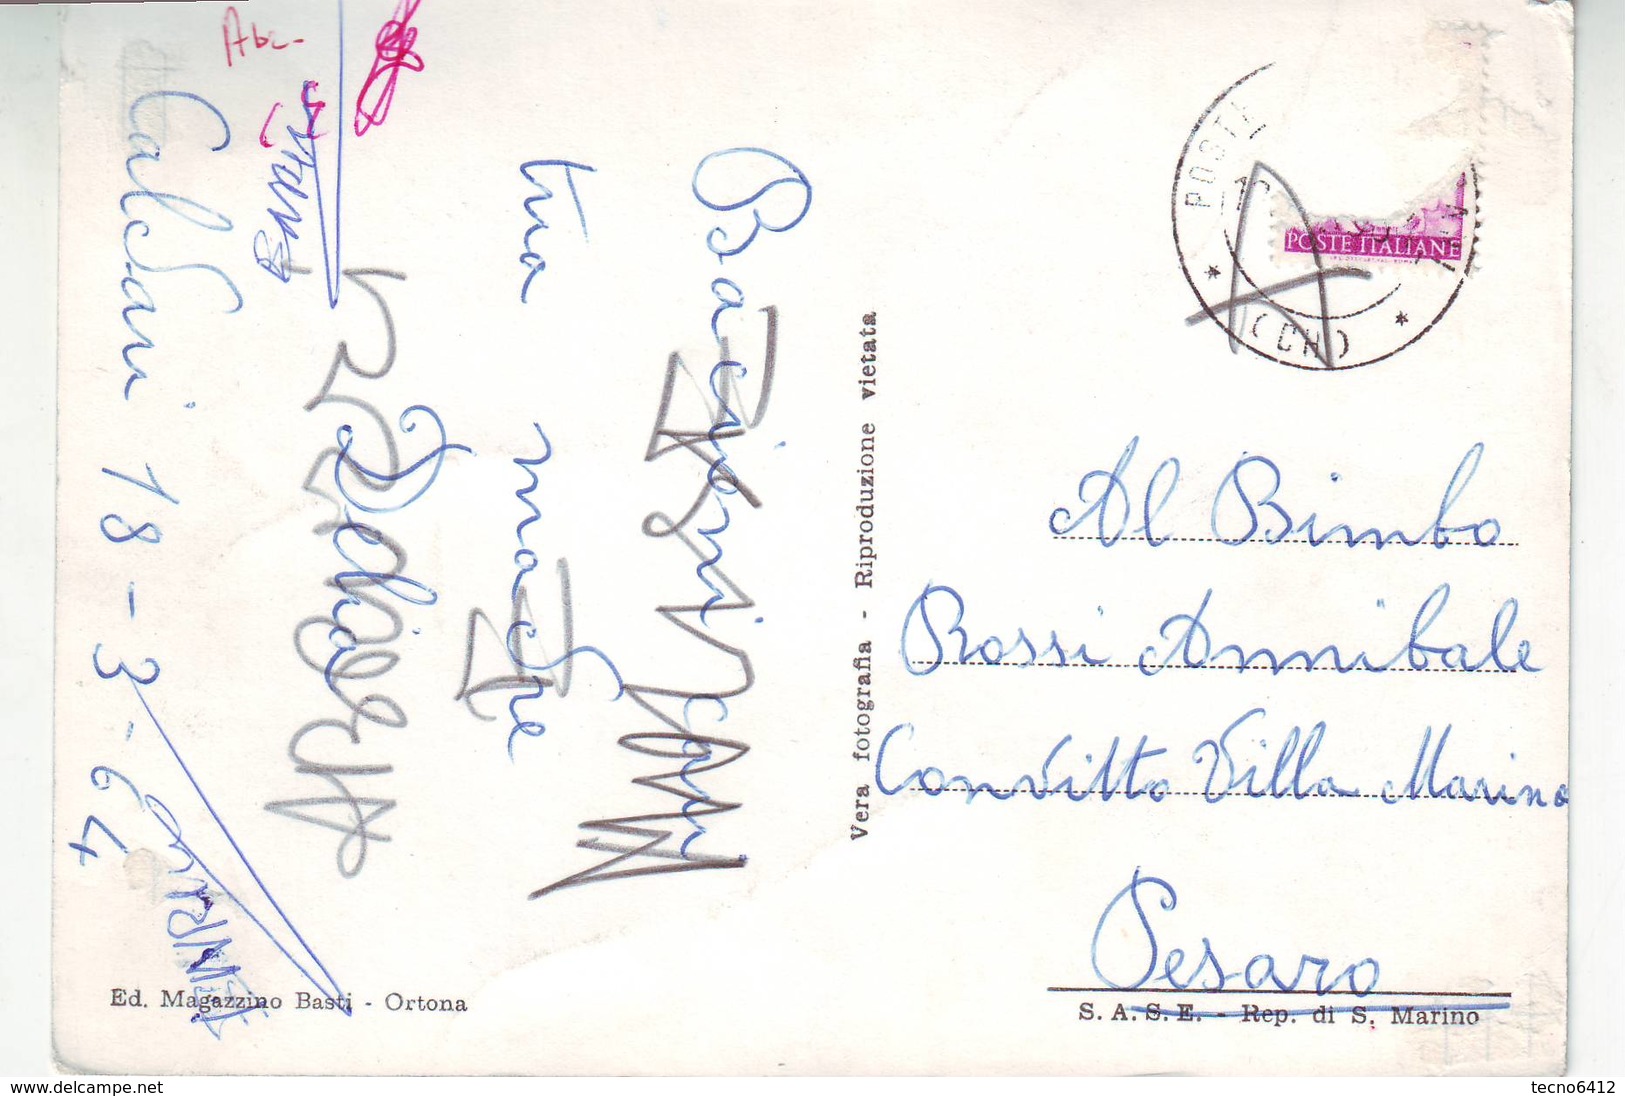 Caldari 18-3-64
Bacioni cari
tua madre
Delia
Abc-
Ed. Magazzino Basti - Ortona
Vera fotografia - Riproduzione vietata
POSTE
(CH)
POSTE ITALIANE
Al Bimbo
Rossi Annibale
Convitto Villa Marina
Pesaro
S. A. S. E. - Rep. di S. Marino
www.delcampe.net
tecno6412